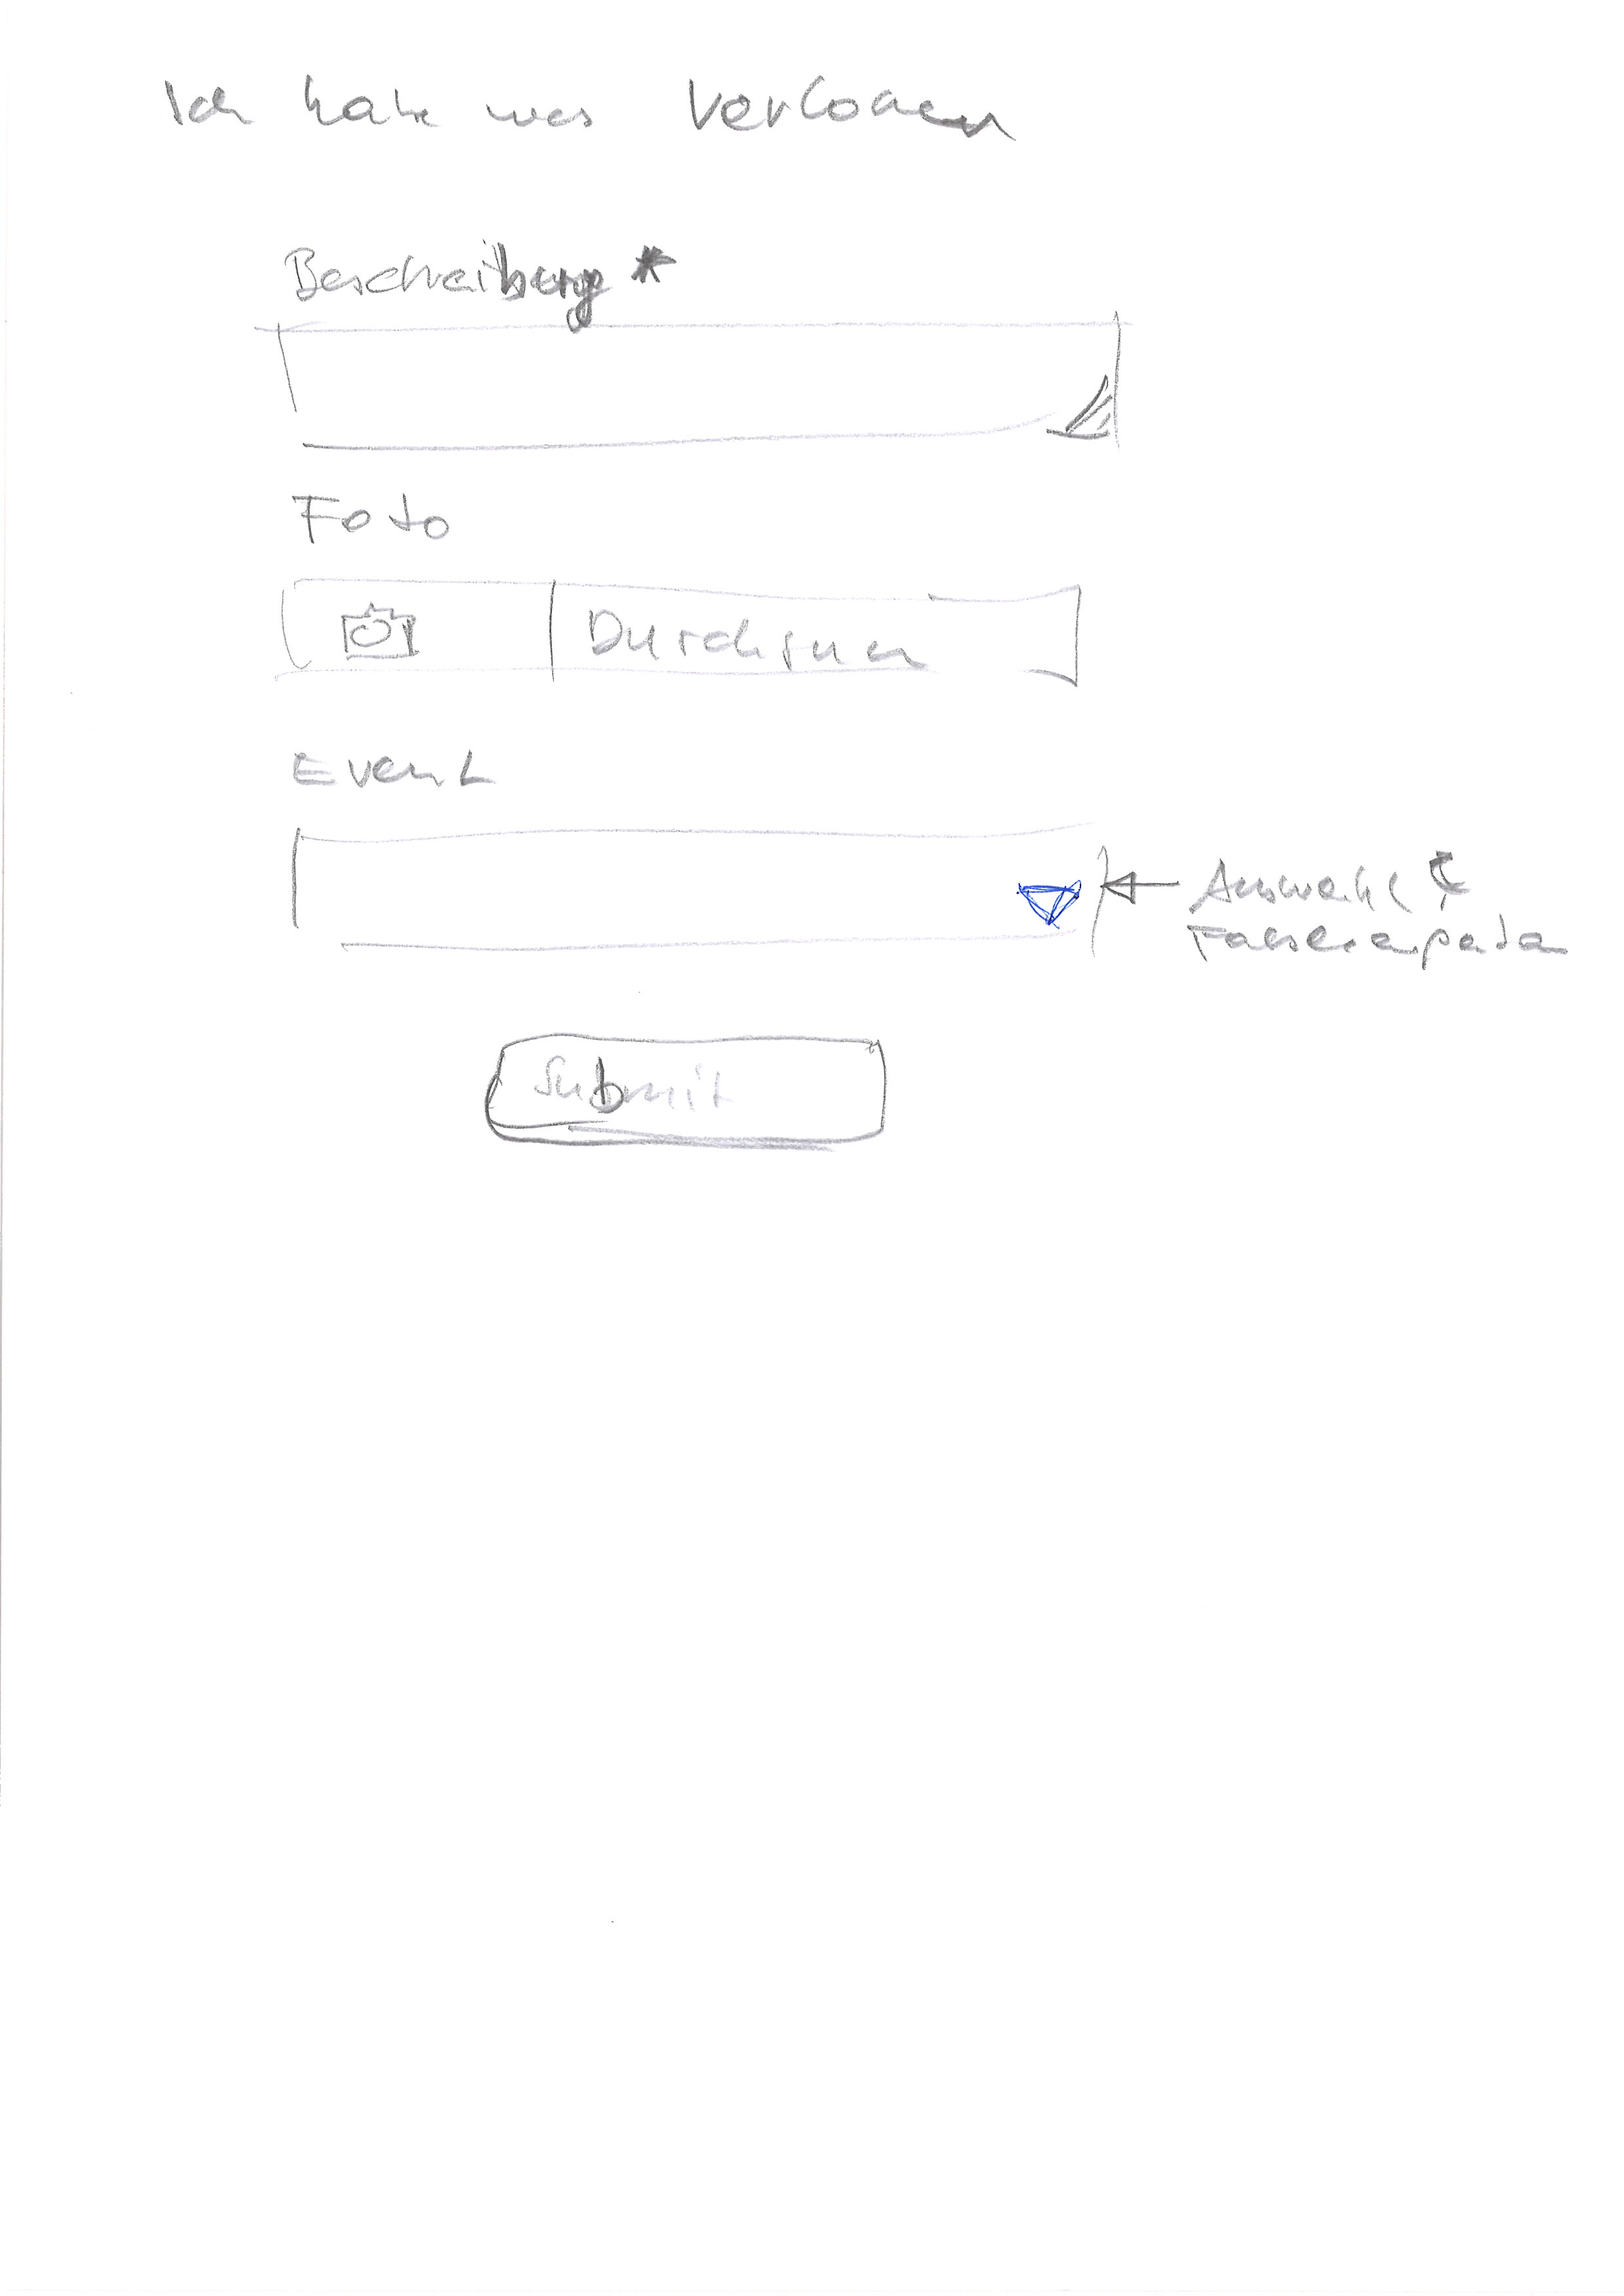 Ich habe was verloren
Beschreibung *
Foto
Durchsuchen
Event
Auswahl &
Submit